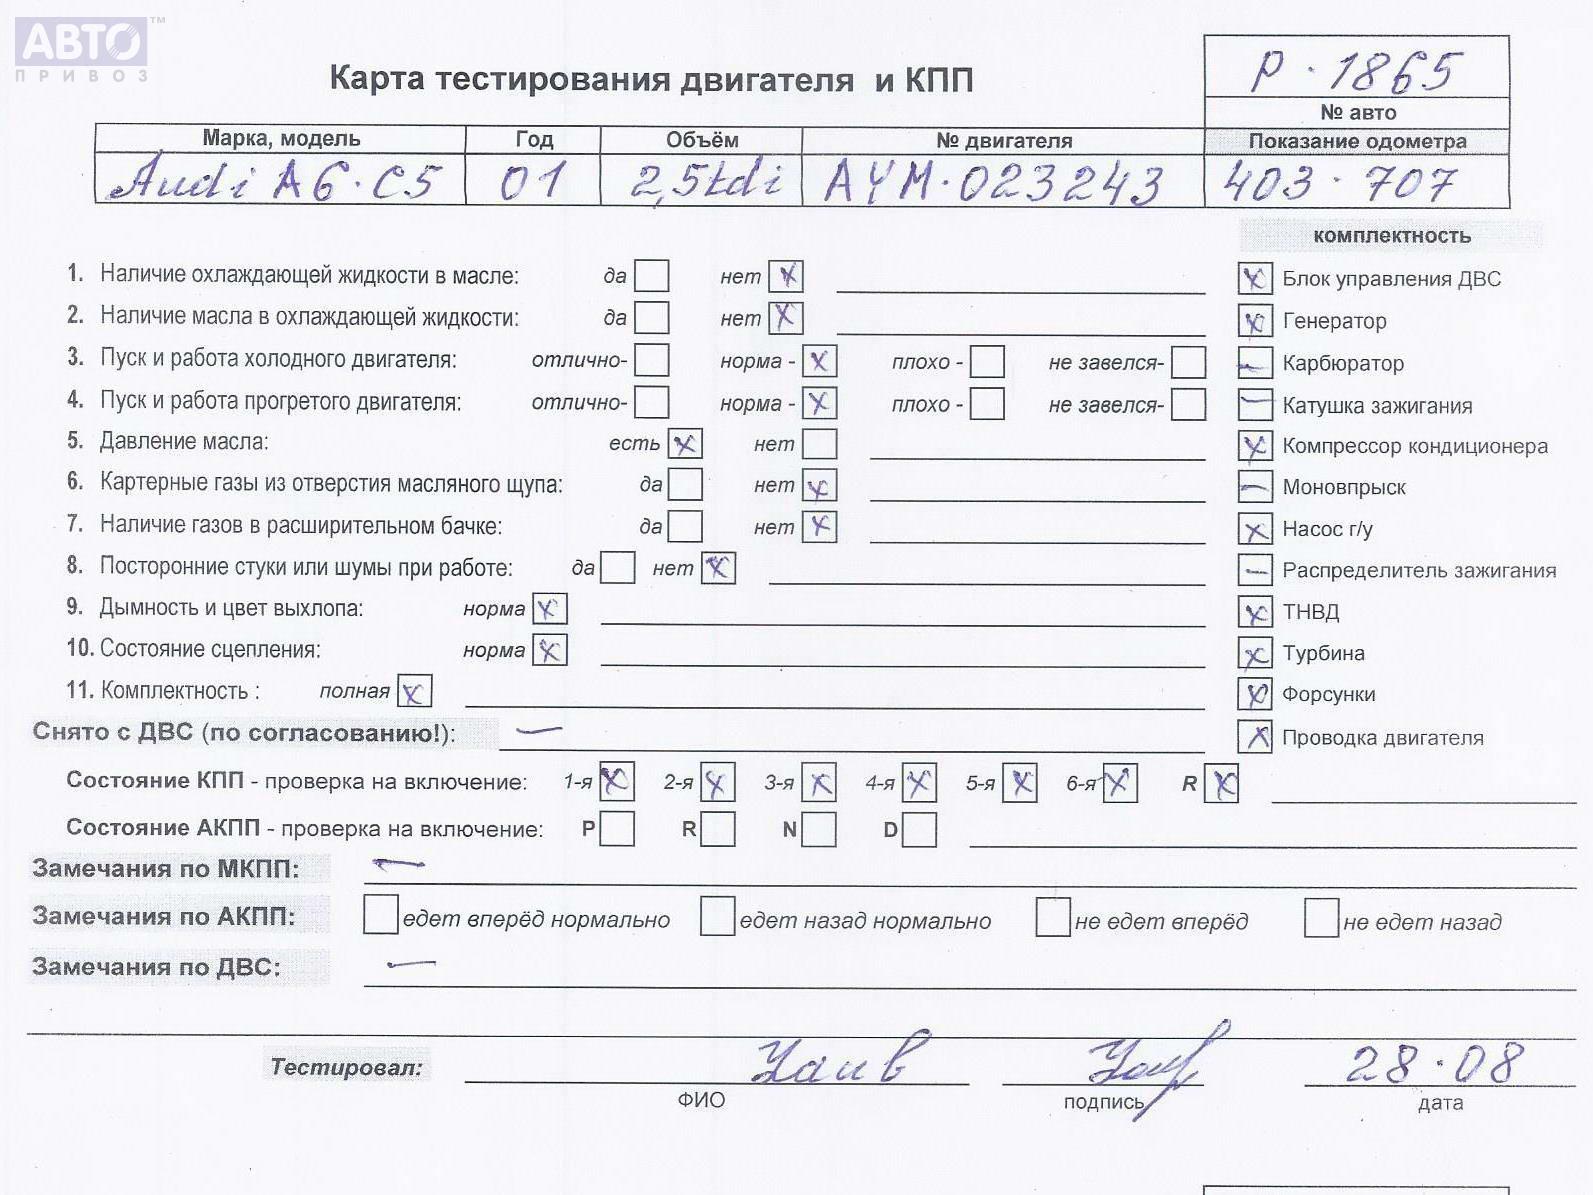 АВТО ™
ПРИВОЗ
Карта тестирования двигателя и КПП
P · 1865
№ авто
Марка, модель Год Объём № двигателя Показание одометра
Audi A6 · C5 01 2,5tdi AYM · 023243 403 · 707
комплектность
1. Наличие охлаждающей жидкости в масле: да нет x
x Блок управления ДВС
2. Наличие масла в охлаждающей жидкости: да нет x
x Генератор
3. Пуск и работа холодного двигателя: отлично- норма - x плохо - не завелся-
– Карбюратор
4. Пуск и работа прогретого двигателя: отлично- норма - x плохо - не завелся-
– Катушка зажигания
5. Давление масла: есть x нет
x Компрессор кондиционера
6. Картерные газы из отверстия масляного щупа: да нет x
– Моновпрыск
7. Наличие газов в расширительном бачке: да нет x
x Насос г/у
8. Посторонние стуки или шумы при работе: да нет x
– Распределитель зажигания
9. Дымность и цвет выхлопа: норма x
x ТНВД
10. Состояние сцепления: норма x
x Турбина
11. Комплектность : полная x
x Форсунки
Снято с ДВС (по согласованию!): –
x Проводка двигателя
Состояние КПП - проверка на включение: 1-я x 2-я x 3-я x 4-я x 5-я x 6-я x R x
Состояние АКПП - проверка на включение: P R N D
Замечания по МКПП: –
Замечания по АКПП: едет вперёд нормально едет назад нормально не едет вперёд не едет назад
Замечания по ДВС: –
Тестировал: 28 · 08
ФИО подпись дата